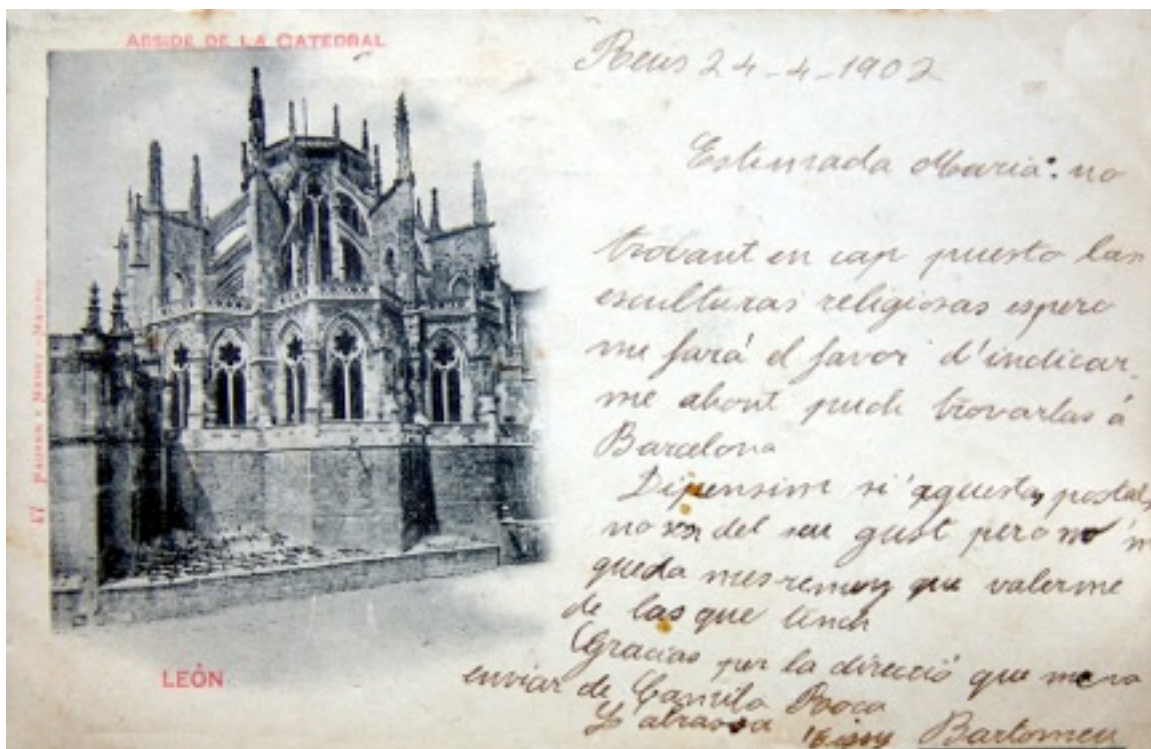 ABSIDE DE LA CATEDRAL
Reus 24-4-1902
Estimada Maria: no
trovant en cap puesto las
esculturas religiosas espero
me fará el favor d'indicar
me ahont puch trovarlas á
Barcelona
Dipensim si aquestas postals
no son del seu gust pero no 'm
queda mes remey que valerme
de las que tinch
Gracias per la direcció que me va
enviar de Camila Rooca
L'abrassa Bartomeu
47 HAUSER Y MENET.-MADRID
LEÓN